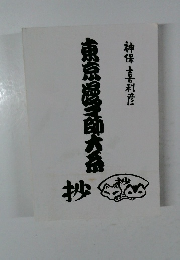 神保喜利彦
東京漫才師大系
抄